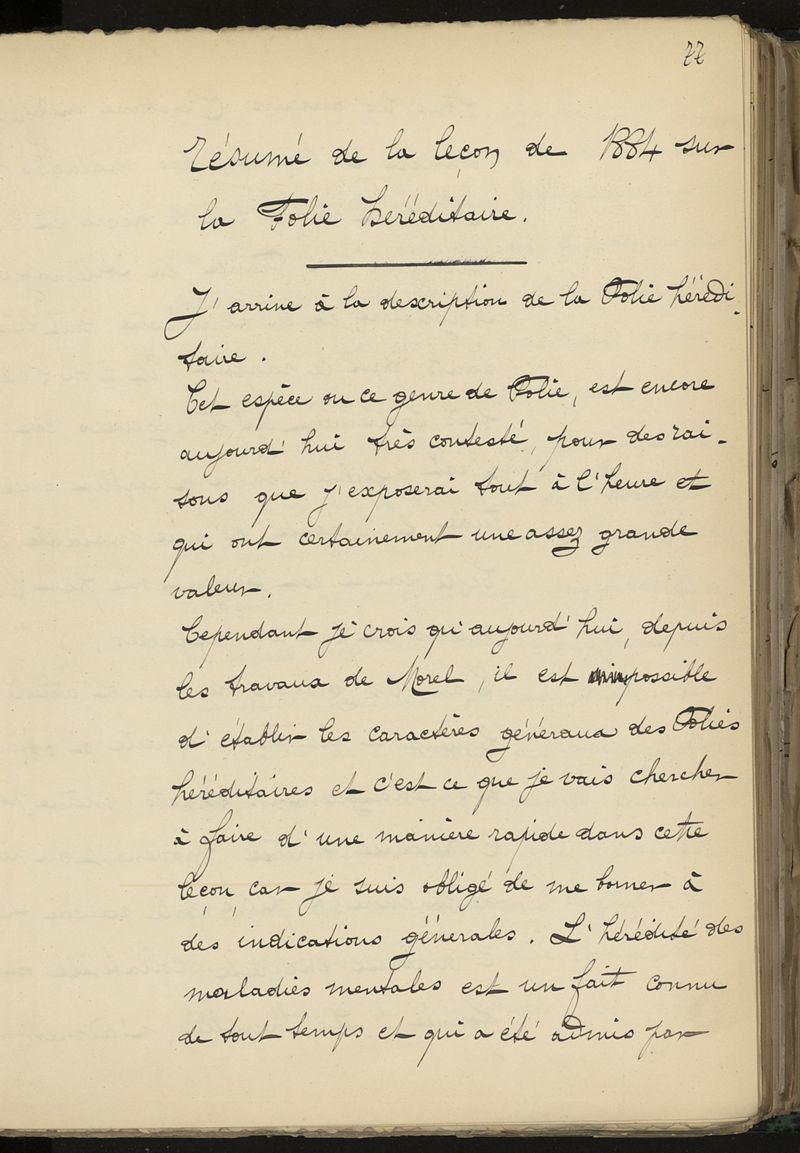 77
Résumé de la leçon de 1884 sur
la Folie héréditaire.
J'arrive à la description de la Folie hérédi-
taire.
Cet espèce ou ce genre de Folie, est encore
aujourd'hui très contesté, pour des rai-
sons que j'exposerai tout à l'heure et
qui ont certainement une assez grande
valeur.
Cependant je crois qu'aujourd'hui, depuis
les travaux de Morel, il est possible
d'établir les caractères généraux des Folies
héréditaires et c'est ce que je vais chercher
à faire d'une manière rapide dans cette
leçon car je suis obligé de me borner à
des indications générales. L'hérédité des
maladies mentales est un fait connu
de tout temps et qui a été admis par